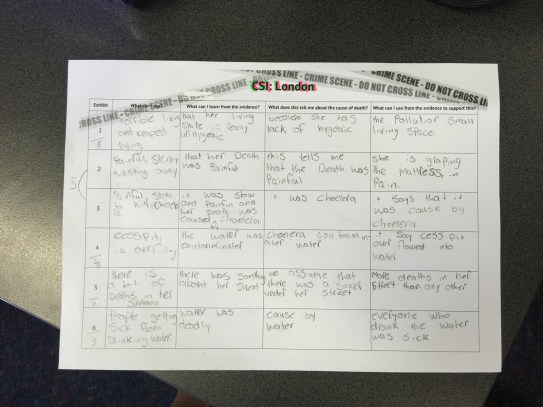 CROSS LINE - CRIME SCENE - DO NOT CROSS LINE - CRIME SCENE - DO NOT CROSS LI
CSI: London
Exhibit
What can I learn from the evidence?
What does this tell me about the cause of death?
What can I use from the evidence to support this?
1
living
and
that her living
State is really
unhygenic
because she has
lack of hygenic
the Pollution small
living Space
2
Painful, Slow
wasting away
that her Death
was Painful
this tells me
that the Death was
Painful
she is
the mattress, in
Pain.
3
Painful, Slow
it was Slow
and Painful and
her death was
caused cholera
it was cholera
it says that it
was cause by
cholera
4
cesspit,
is
the water was
Cholera
water
it Say cess pit
over flowed into
water
5
there is
a lot of
Deaths in her
there was
about her Street
we assume that
there was a
under her street
More deaths in her
Street than any other
6
People getting
Sick from
Drinking water
water was
deadly
cause by
water
everyone who
drank the water
was Sick